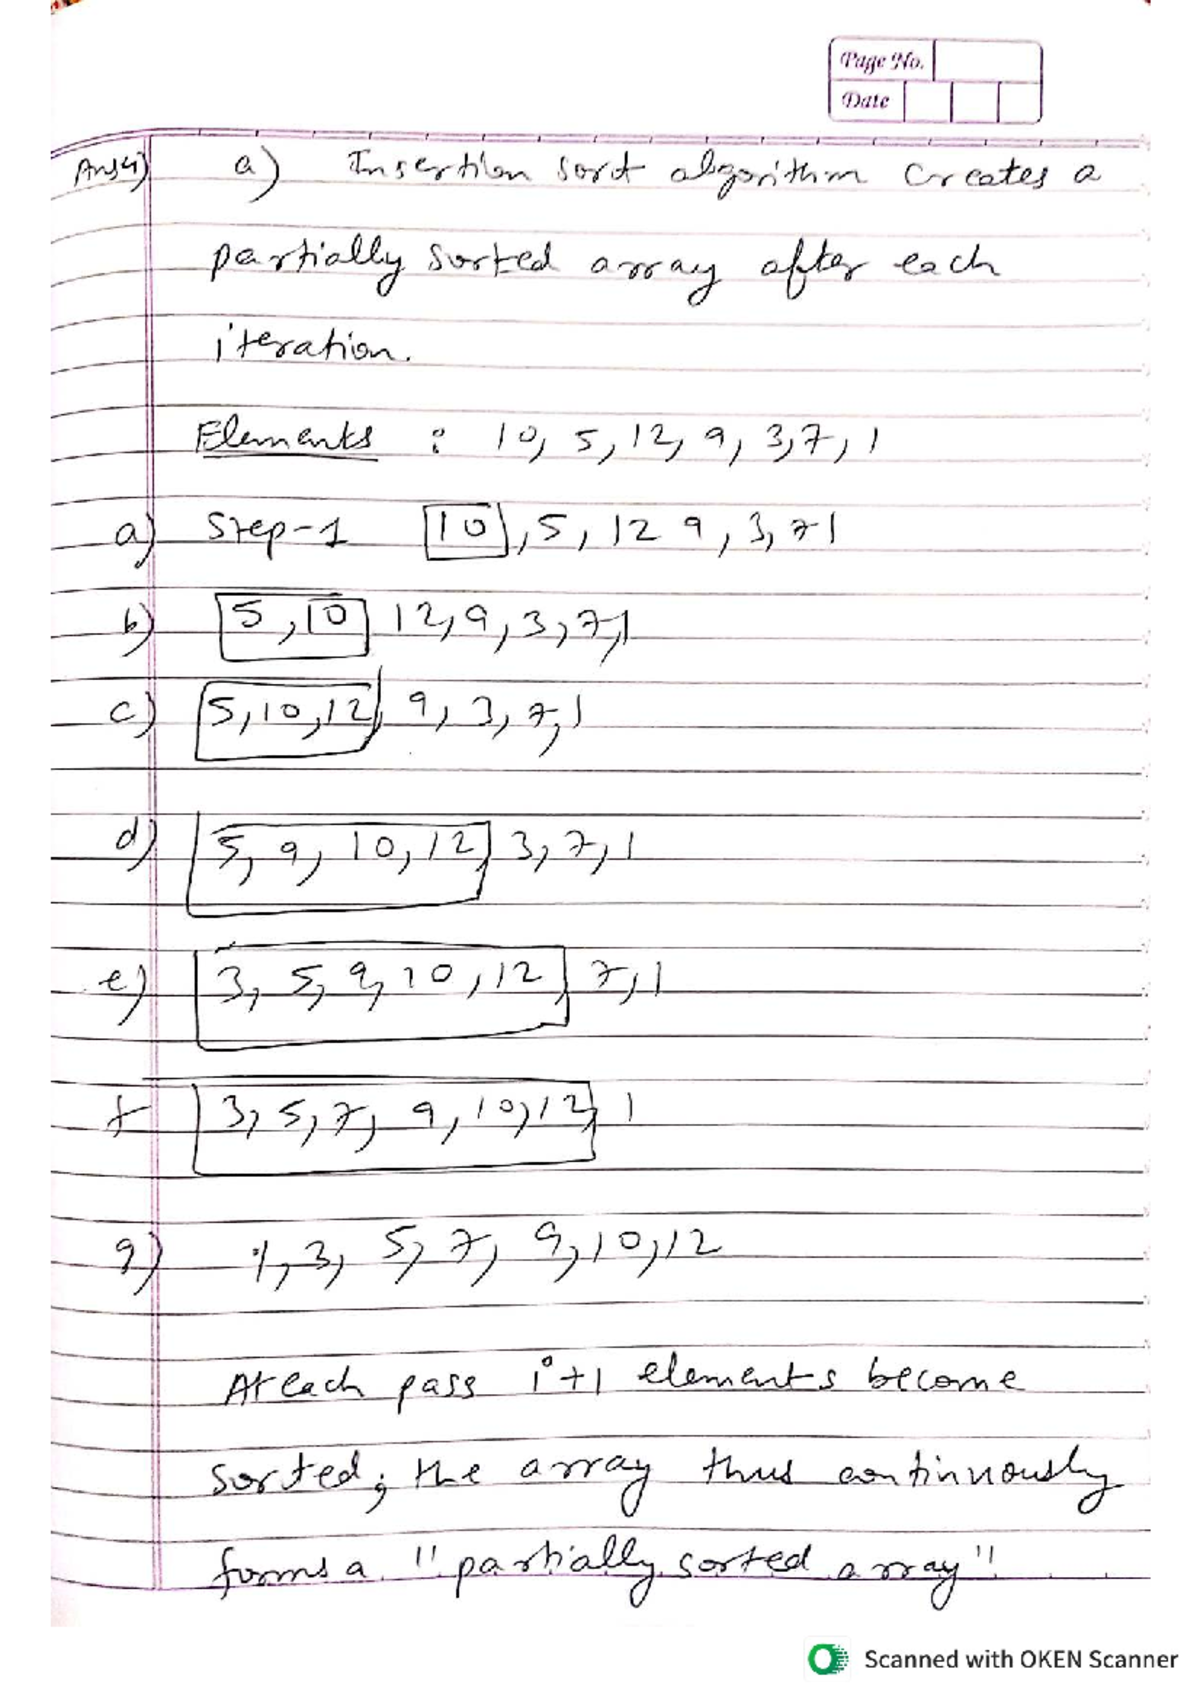 Page No.
Date
Ans4) a) Insertion sort algorithm creates a
partially sorted array after each
iteration.
Elements : 10, 5, 12, 9, 3, 7, 1
a) Step-1 10, 5, 12 9, 3, 7 1
b) 5, 10 12, 9, 3, 7, 1
c) 5, 10, 12, 9, 3, 7, 1
d) 5, 9, 10, 12, 3, 7, 1
e) 3, 5, 9, 10, 12, 7, 1
f 3, 5, 7, 9, 10, 12, 1
g) 1, 3, 5, 7, 9, 10, 12
At each pass i+1 elements become
sorted; the array thus continuously
forms a "partially sorted array"
Scanned with OKEN Scanner